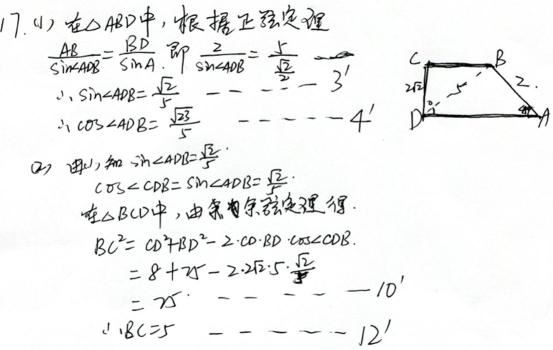 17. (1) 在△ABD中, 根据正弦定理
AB/sin∠ADB = BD/sinA. 即 2/sin∠ADB = 5/(√2/2)
∴ sin∠ADB = √2/5 ------ 3'
∴ cos∠ADB = √23/5 ------ 4'
(2) 由(1)知 sin∠ADB = √2/5.
cos∠CDB = sin∠ADB = √2/5.
在△BCD中, 由余弦定理得.
BC² = CD²+BD²-2·CD·BD·cos∠CDB.
= 8+25-2·2√2·5·√2/5
= 25. ------ 10'
∴ BC=5 ------ 12'
C B
2√2 5 2
D A